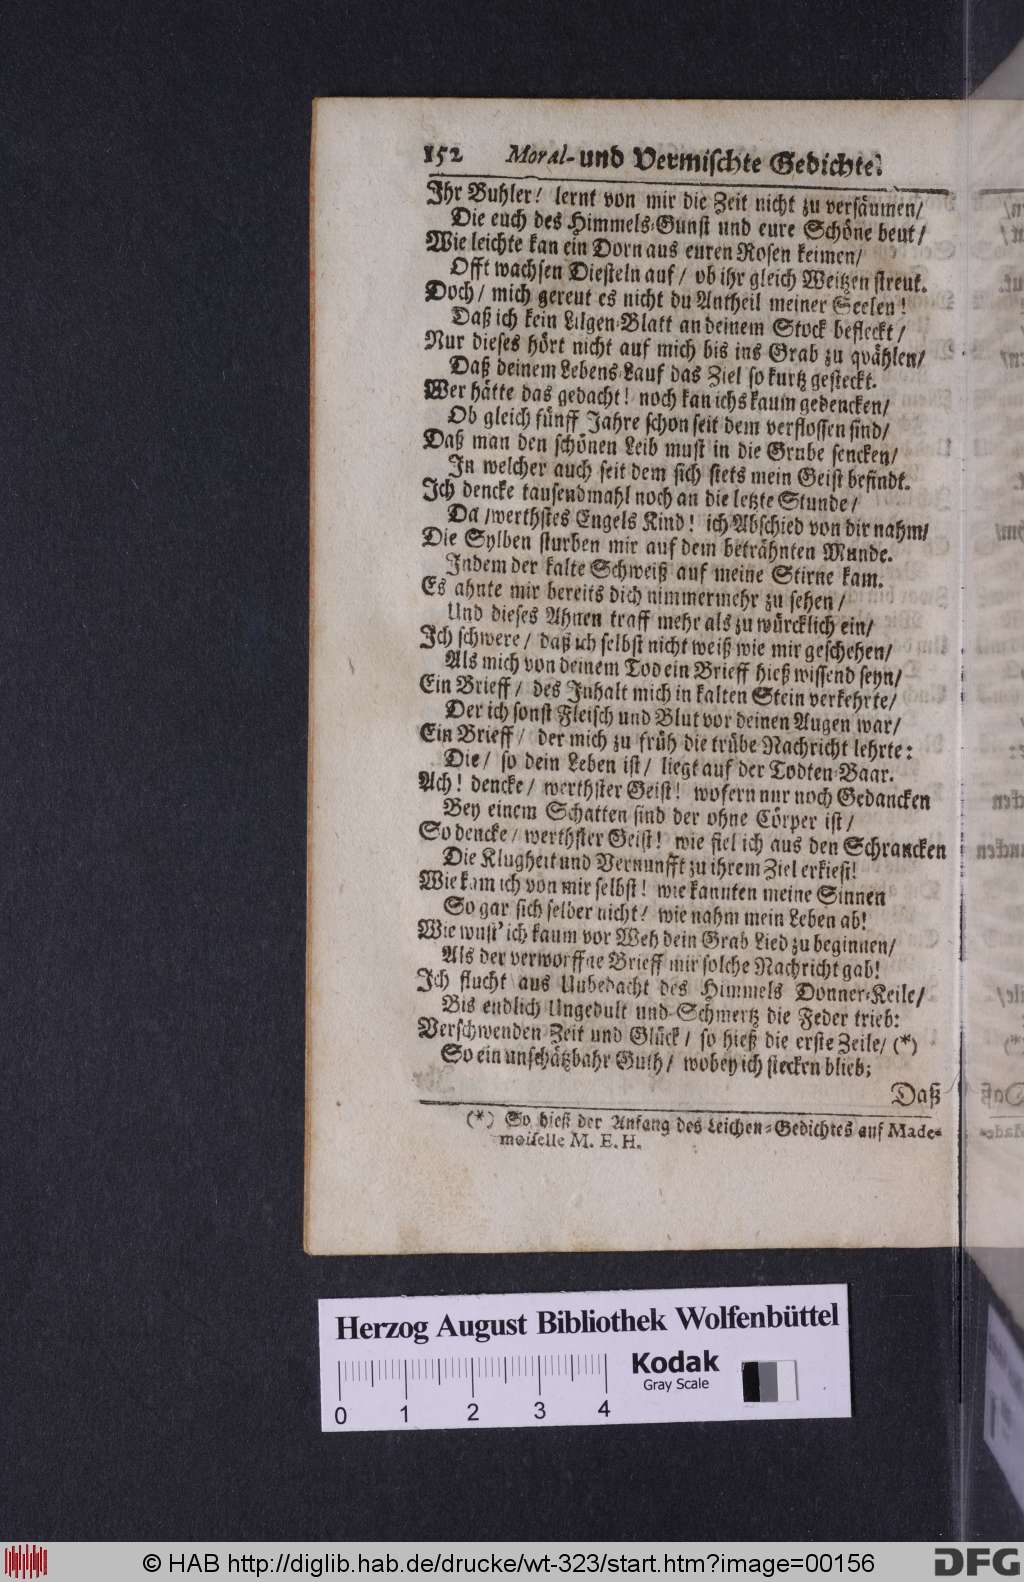 152 Moral- und Vermischte Gedichte.
Ihr Buhler! lernt von mir die Zeit nicht zu versäumen/
Die euch des Himmels-Gunst und eure Schöne beut/
Wie leichte kan ein Dorn aus euren Rosen keimen/
Offt wachsen Diesteln auf/ ob ihr gleich Weitzen streut.
Doch/ mich gereut es nicht du Antheil meiner Seelen!
Daß ich kein Lilgen-Blatt an deinem Stock befleckt/
Nur dieses hört nicht auf mich bis ins Grab zu qvählen/
Daß deinem Lebens-Lauf das Ziel so kurtz gesteckt.
Wer hätte das gedacht! noch kan ichs kaum gedencken/
Ob gleich fünff Jahre schon seit dem verflossen sind/
Daß man den schönen Leib must in die Grube sencken/
In welcher auch seit dem sich stets mein Geist befindt.
Ich dencke tausendmahl noch an die letzte Stunde/
Da/ werthstes Engels Kind! ich Abschied von dir nahm/
Die Sylben sturben mir auf dem beträhnten Munde.
Indem der kalte Schweiß auf meine Stirne kam.
Es ahnte mir bereits dich nimmermehr zu sehen/
Und dieses Ahnen traff mehr als zu würcklich ein/
Ich schwere/ daß ich selbst nicht weiß wie mir geschehen/
Als mich von deinem Tod ein Brieff hieß wissend seyn/
Ein Brieff/ des Inhalt mich in kalten Stein verkehrte/
Der ich sonst Fleisch und Blut vor deinen Augen war/
Ein Brieff/ der mich zu früh die trübe Nachricht lehrte:
Die/ so dein Leben ist/ liegt auf der Todten-Baar.
Ach! dencke/ werthster Geist! wofern nur noch Gedancken
Bey einem Schatten sind der ohne Cörper ist/
So dencke/ werthster Geist! wie fiel ich aus den Schrancken
Die Klugheit und Vernunfft zu ihrem Ziel erkiest!
Wie kam ich von mir selbst! wie kannten meine Sinnen
So gar sich selber nicht! wie nahm mein Leben ab!
Wie wust' ich kaum vor Weh dein Grab Lied zu beginnen/
Als der verworffne Brieff mir solche Nachricht gab!
Ich flucht aus Unbedacht des Himmels Donner-Keile/
Bis endlich Ungedult und Schmertz die Feder trieb:
Verschwenden Zeit und Glück/ so hieß die erste Zeile/ (*)
So ein unschätzbahr Guth/ wobey ich stecken blieb;
Daß
(*) So hieß der Anfang des Leichen-Gedichtes auf Made-
moiselle M. E. H.
Herzog August Bibliothek Wolfenbüttel
Kodak
Gray Scale
0 1 2 3 4
© HAB http://diglib.hab.de/drucke/wt-323/start.htm?image=00156
DFG